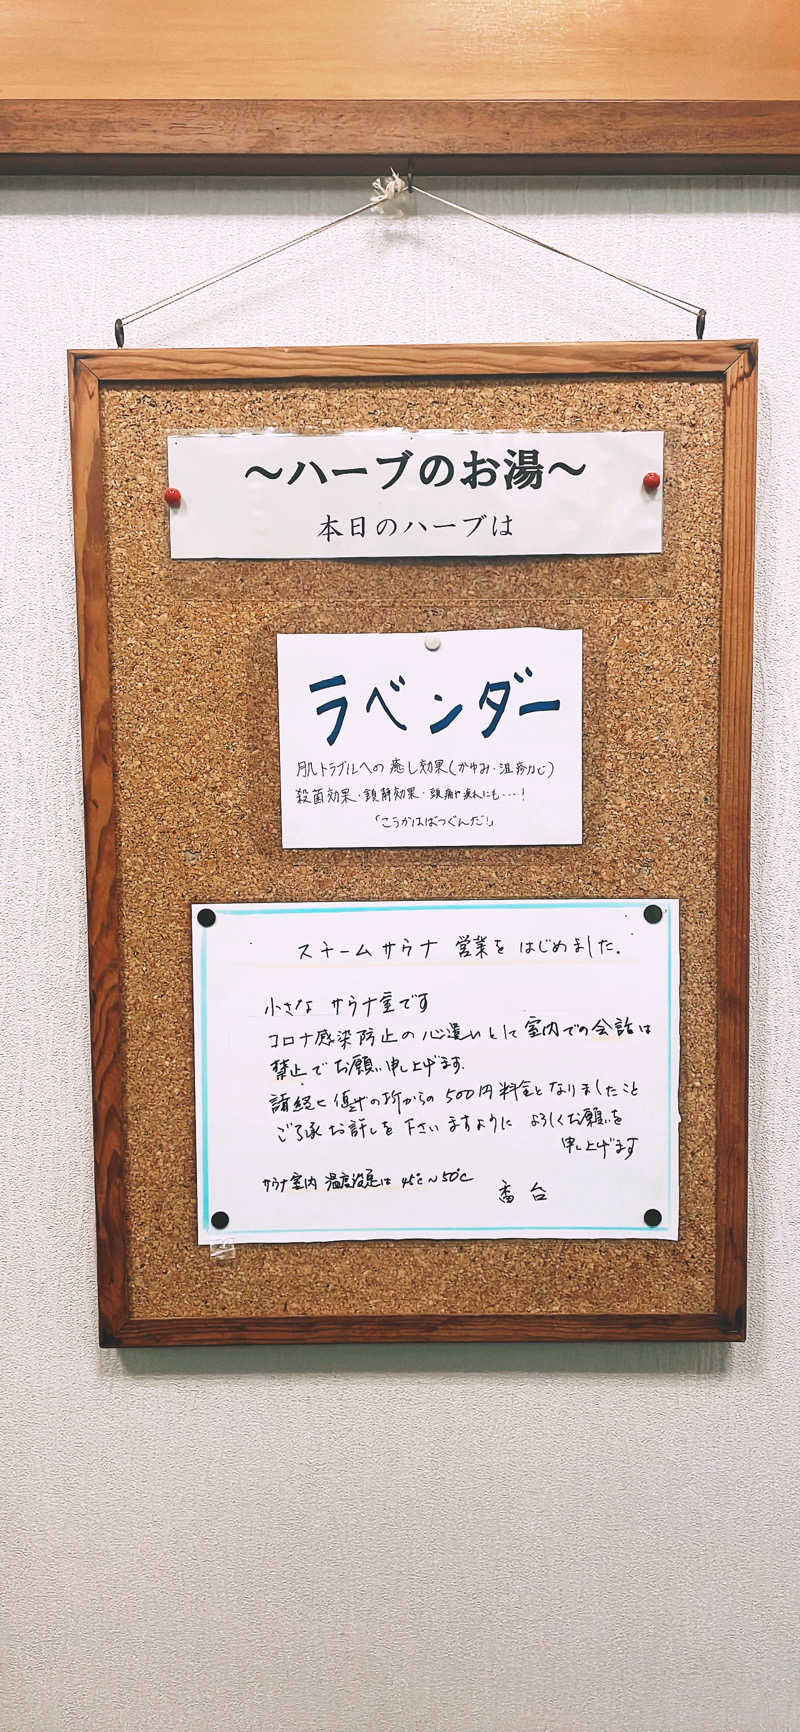 ～ハーブのお湯～
本日のハーブは
ラベンダー
肌トラブルへの癒し効果(かゆみ・湿疹など)
殺菌効果・鎮静効果・頭痛や疲れにも・・・!
「こうかはばつぐんだ!」
スチームサウナ 営業を はじめました.
小さな サウナ室です
コロナ感染防止の心遣いとして室内での会話は
禁止でお願い申し上げます.
諸経と値上の所からの 500円料金となりましたこと
ご了承お許しを下さいますように よろしくお願いを
申し上げます
サウナ室内 温度設定は 45℃～50℃
番台